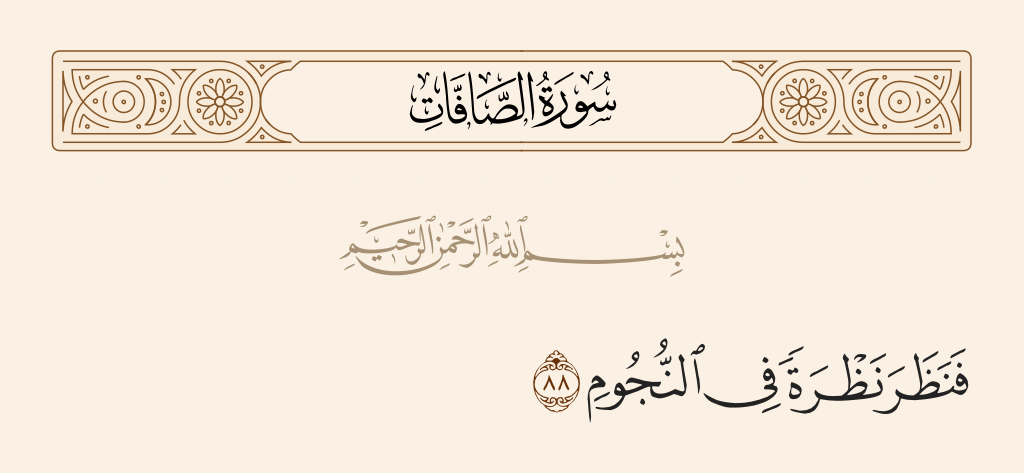 سُورَةُ الصَّافَّاتِ
بِسْمِ ٱللَّهِ ٱلرَّحْمَٰنِ ٱلرَّحِيمِ
فَنَظَرَ نَظْرَةً فِى ٱلنُّجُومِ ٨٨